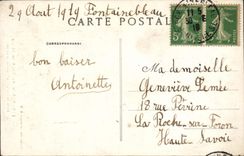 29 Aout 1919 Fontainebleau
CARTE POSTALE
CORRESPONDANCE
bon baiser
Antoinette
Ma demoiselle
Geneviève
18 rue
La Roche sur Foron
Haute Savoie